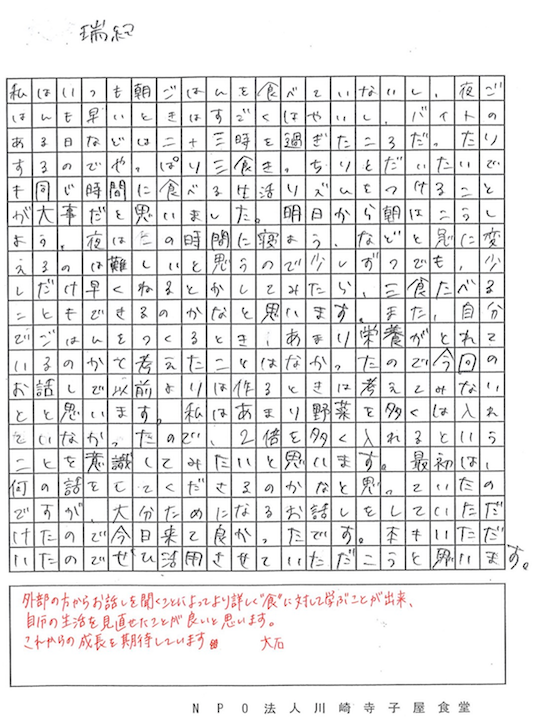 瑞紀
私はいつも朝ごはんを食べていないし、夜ご
はんも早いときはすごくはやいし、バイトの
ある日などは二十三時を過ぎたころだ。たり
するのでやっぱり三食き。ちりとだいたいで
も同じ時間に食べる生活リズムをつけること
が大事だと思いました。明日から朝はこうし
よう、夜はこの時間に寝よう、などと急に変
えるのは難しいと思うので少しずつでも、少
しだけ早くねるとかしてみたら、三食たべる
こともできるのかなと思います。また、自分
でごはんをつくるとき、あまり栄養がとれて
いるのかて考えたことはなかったので今回の
お話しで以前よりは作るときは考えてみない
とと思います。私はあまり野菜を多くは入れ
ていなかったので、2倍を多く入れるという
ことを意識してみたいと思います。最初は、
何の話をしてくださるのかなと思っていたの
ですが、大分ためになるお話しをしていただ
けたので今日来て良かったです。本もいただ
いたのでぜひ活用させていただこうと思います。
外部の方からお話しを聞くことによってより詳しく"食"に対して学ぶことが出来、
自分の生活を見直せたことが良いと思います。
これからの成長を期待しています 大石
NPO法人川崎寺子屋食堂